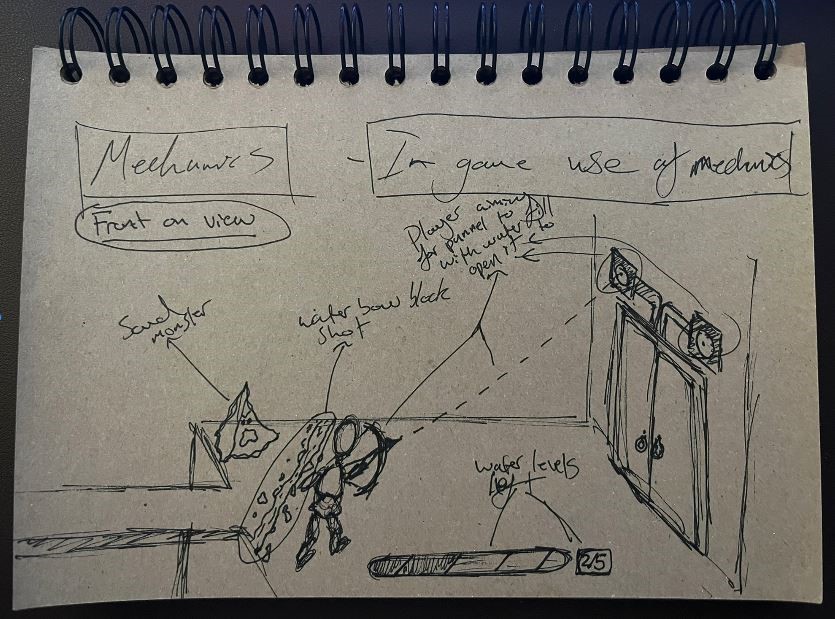 Mechanics
- In game use of mechanics
Front on view
Player aiming
for pannel to fill
with water to
open it
Sand
monster
water bow block
shot
water levels
left
2/5